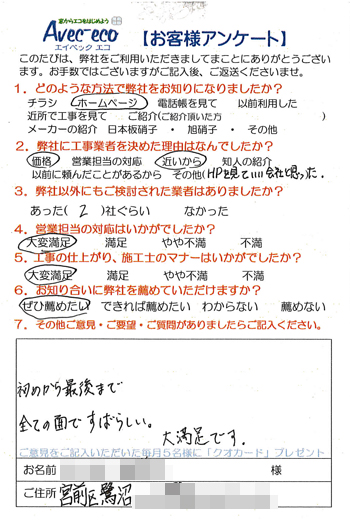 窓からエコをはじめよう
Avec-eco
エイベック エコ
【お客様アンケート】
このたびは、弊社をご利用いただきましてまことにありがとうござい
ます。お手数ではございますがご記入後、ご返送くださいませ。
1. どのような方法で弊社をお知りになりましたか?
チラシ ホームページ 電話帳を見て 以前利用した
近所で工事を見て ご紹介(ご紹介頂いた方 )
メーカーの紹介 日本板硝子 ・ 旭硝子 ・ その他
2. 弊社に工事業者を決めた理由はなんでしたか?
価格 営業担当の対応 近いから 知人の紹介
以前に頼んだことがあるから その他(HPを見ていい会社と思った.
3. 弊社以外にもご検討された業者はありましたか?
あった( 2 )社ぐらい なかった
4. 営業担当の対応はいかがでしたか?
大変満足 満足 やや不満 不満
5. 工事の仕上がり、施工士のマナーはいかがでしたか?
大変満足 満足 やや不満 不満
6. お知り合いに弊社を薦めていただけますか?
ぜひ薦めたい できれば薦めたい わからない 薦めない
7. その他ご意見・ご要望・ご質問がありましたらご記入ください。
初めから最後まで
全ての面ですばらしい。
大満足です.
ご意見をご記入いただいた毎月5名様に「クオカード」プレゼント
お名前 様
ご住所 宮前区鷺沼